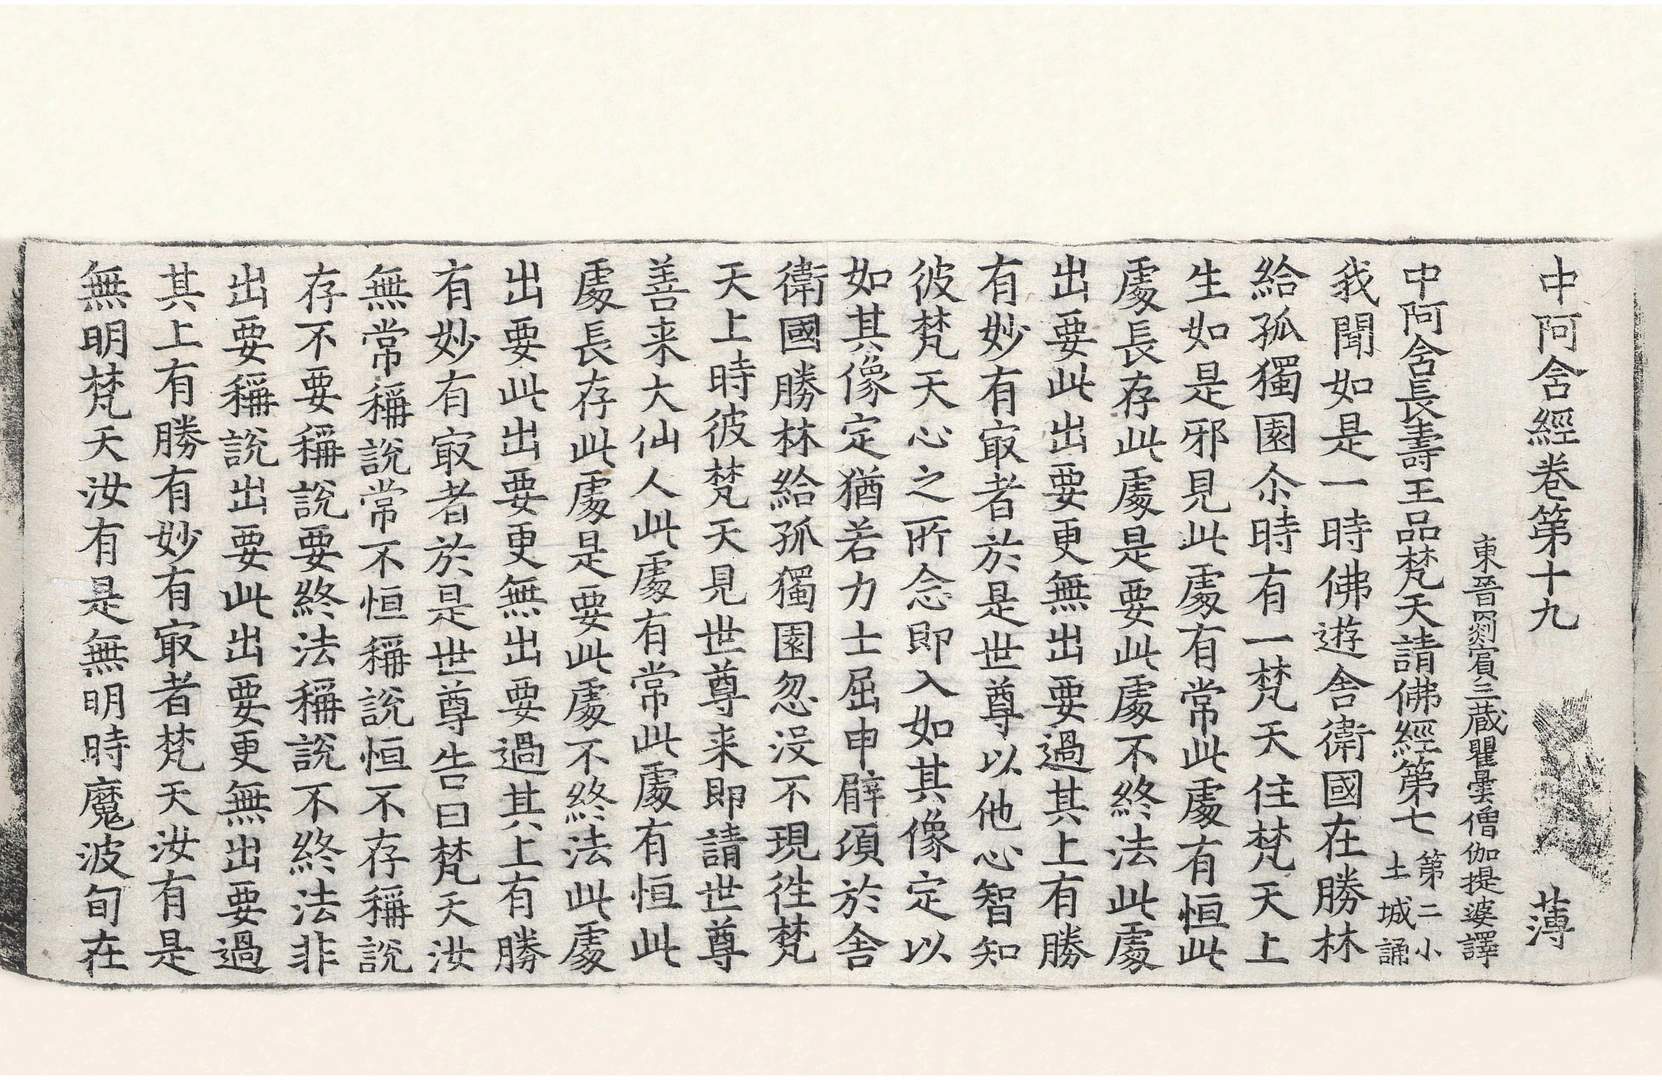 中阿含經卷第十九 薄
東晉罽賓三藏瞿曇僧伽提婆譯
中阿含長壽王品梵天請佛經第七 第二小土城誦
我聞如是一時佛遊舍衛國在勝林
給孤獨園尒時有一梵天住梵天上
生如是邪見此處有常此處有恒此
處長存此處是要此處不終法此處
出要此出要更無出要過其上有勝
有妙有㝡者於是世尊以他心智知
彼梵天心之所念即入如其像定以
如其像定猶若力士屈申臂須於舍
衛國勝林給孤獨園忽没不現徃梵
天上時彼梵天見世尊来即請世尊
善来大仙人此處有常此處有恒此
處長存此處是要此處不終法此處
出要此出要更無出要過其上有勝
有妙有㝡者於是世尊告曰梵天汝
無常稱說常不恒稱說恒不存稱說
存不要稱說要終法稱說不終法非
出要稱說出要此出要更無出要過
其上有勝有妙有㝡者梵天汝有是
無明梵天汝有是無明時魔波旬在